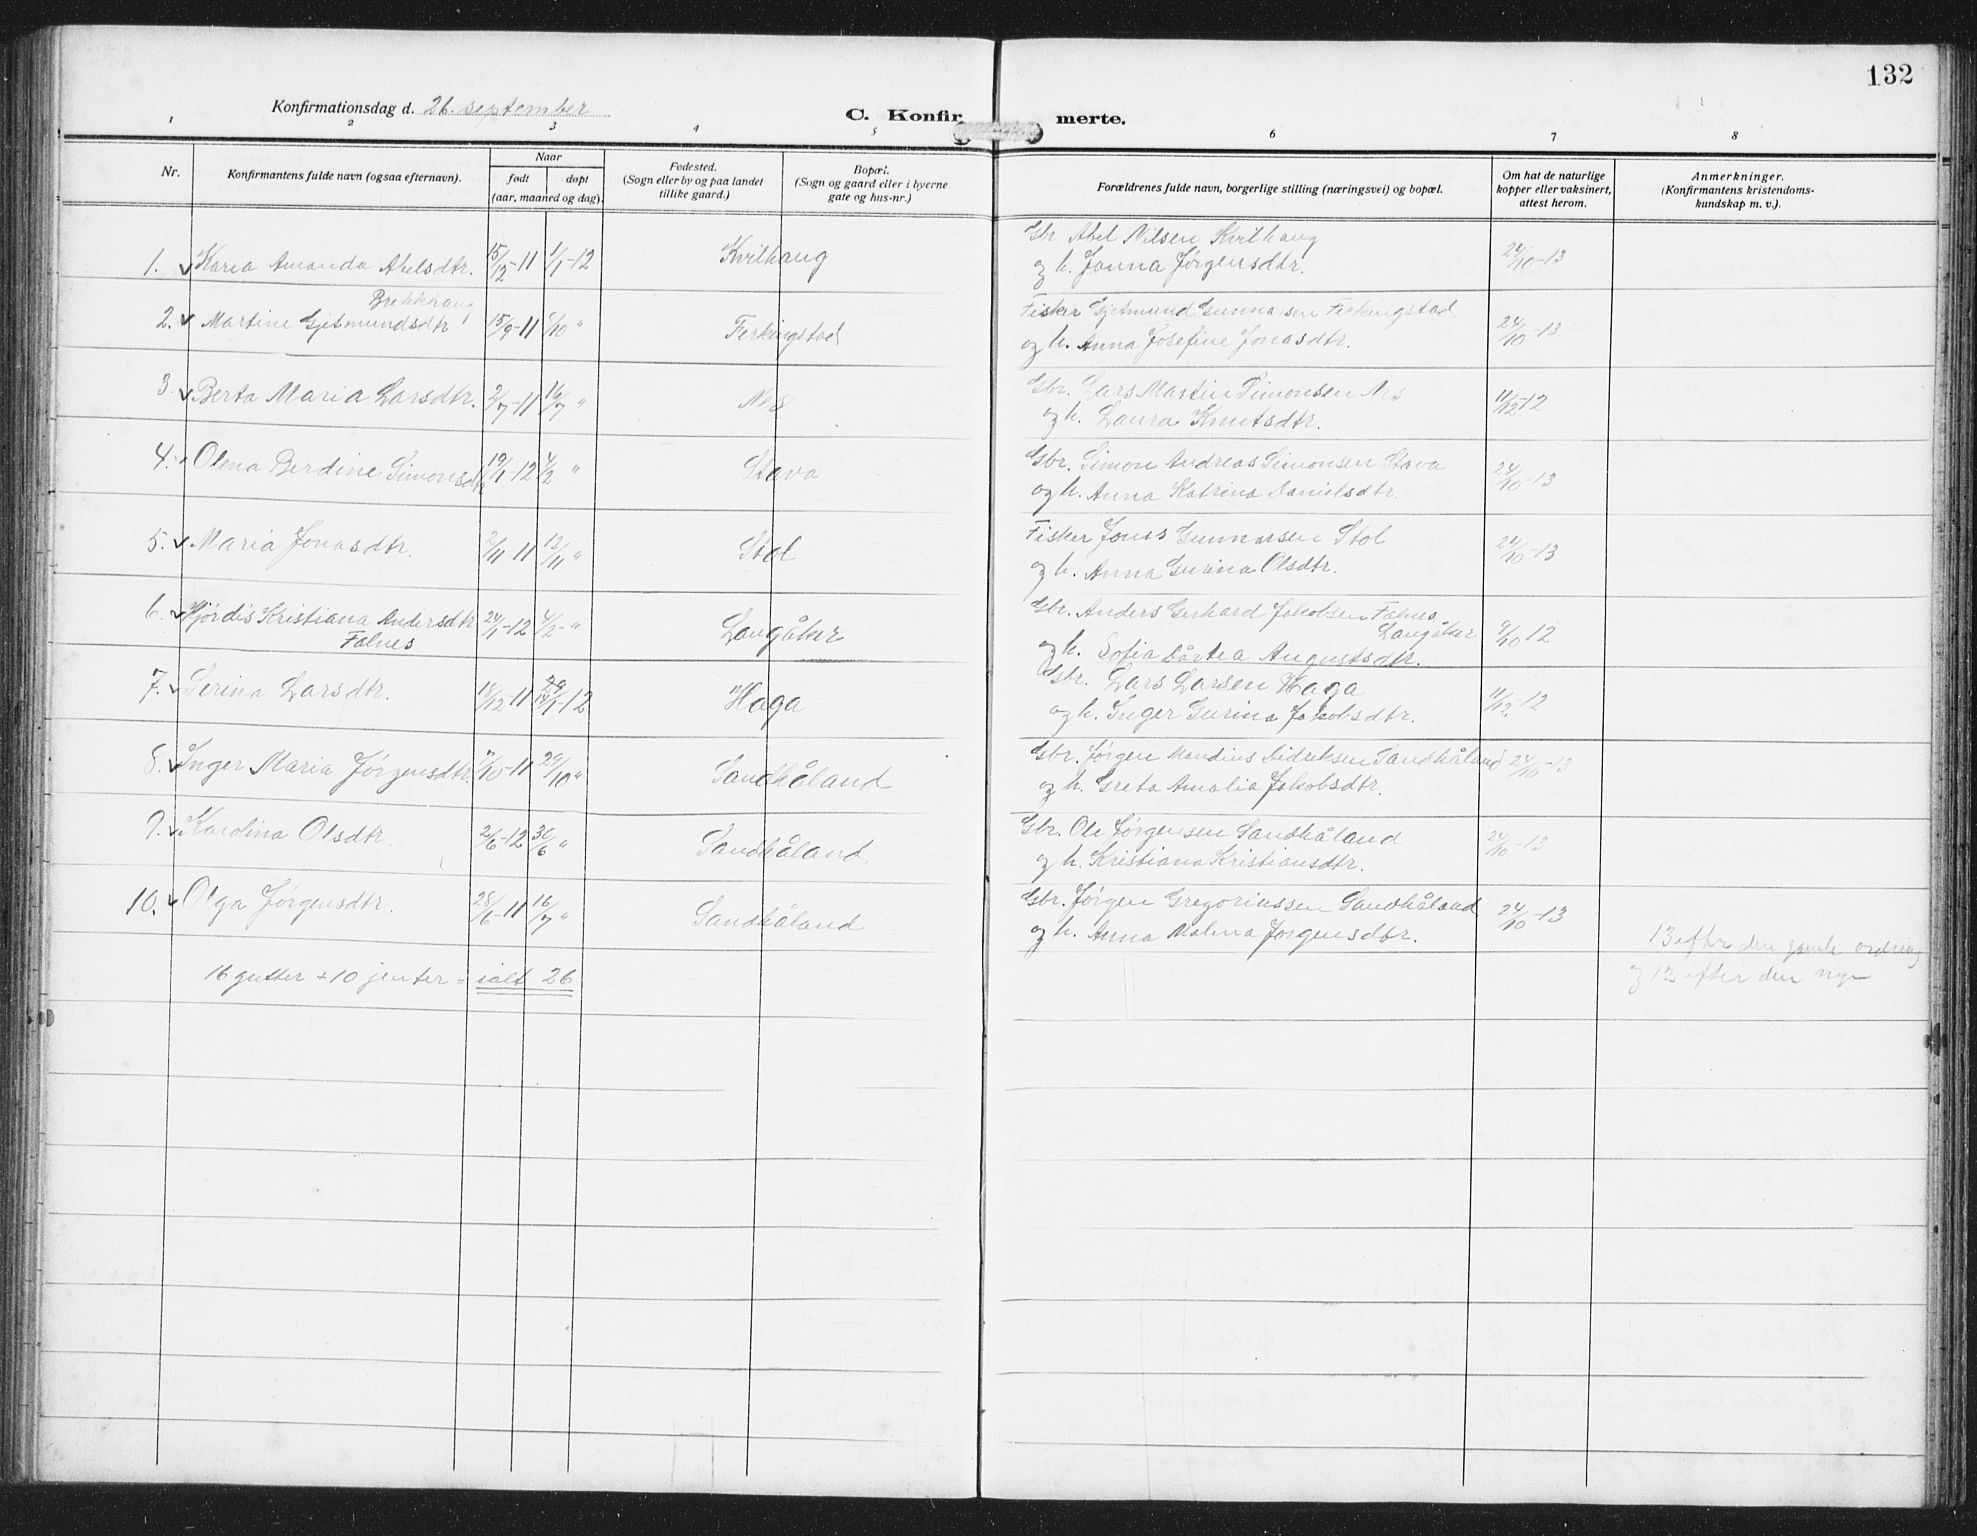 132
Konfirmationsdag d. 26. september
C. Konfirmerte.
1 2 3 4 5 6 7 8
Nr.
Konfirmantens fulde navn (ogsaa efternavn).
Naar
født
døpt
(aar, maaned og dag).
Fødested.
(Sogn eller by og paa landet
tillike gaard.)
Bopæl.
(Sogn og gaard eller i byerne
gate og hus-nr.)
Forældrenes fulde navn, borgerlige stilling (næringsvei) og bopæl.
Om hat de naturlige
kopper eller vaksinert,
attest herom.
Anmerkninger.
(Konfirmantens kristendoms-
kundskap m. v.).
Gbr. Abel Nilsen Kvilhaug
1. Karia Amanda Abelsdtr. 15/12-11 1/1-12 Kvilhaug og h. Janna Jørgensdtr. 24/10-13
Brekkhaug
Fisker Gjetmund Gunnarsen Ferkingstad
2. Martine Gjetmundsdtr 15/9-11 /10 " Ferkingstad 24/10-13
og h. Anna Josefine Jonasdtr.
3. Berta Maria Larsdtr. 2/7-11 16/7 " Nes Gbr. Lars Martin Simonsen Nes 11/12-12
og h. Laura Knutsdtr.
4. Olena Berdine Simonsdtr 19/1-12 4/2 " Stava Gbr. Simon Andreas Simonsen Stava 24/10-13
og h. Anna Katrina Danielsdtr.
5. Maria Jonasdtr. 2/11-11 12/11 " Stol Fisker Jonas Gunnarsen Stol 24/10-13
og h. Anna Gurina Olsdtr.
6. Hjördis Kristiana Andersdtr 24/1-12 4/2-" Langåker Gbr. Anders Gerhard Jakobsen Falnes 9/10 12
Falnes
Langåker
og h. Sofia Dårtea Augustsdtr.
7. Serina Larsdtr. 18/12-11 14/1-12 Haga Gbr. Lars Larsen Haga 11/12-12
og h. Inger Gurina Jakobsdtr.
8. Inger Maria Jørgensdtr. 7/10-11 29/10 " Sandhåland Gbr. Jørgen Mandius Didriksen Sandhåland 24/10-13
og h. Greta Amalia Jakobsdtr.
9. Karolina Olsdtr. 2/6-12 30/6 " Sandhåland Gbr. Ole Jørgensen Sandhåland 24/10-13
og h. Kristiana Kristiansdtr.
10. Olga Jörgensdtr. 28/6-11 16/7 " Sandhåland Gbr. Jörgen Gregoriussen Sandhåland 24/10-13
og h. Anna Malena Jörgensdtr.
13 efter den gamle ordning
16 gutter + 10 jenter = ialt 26
og 12 efter den nye